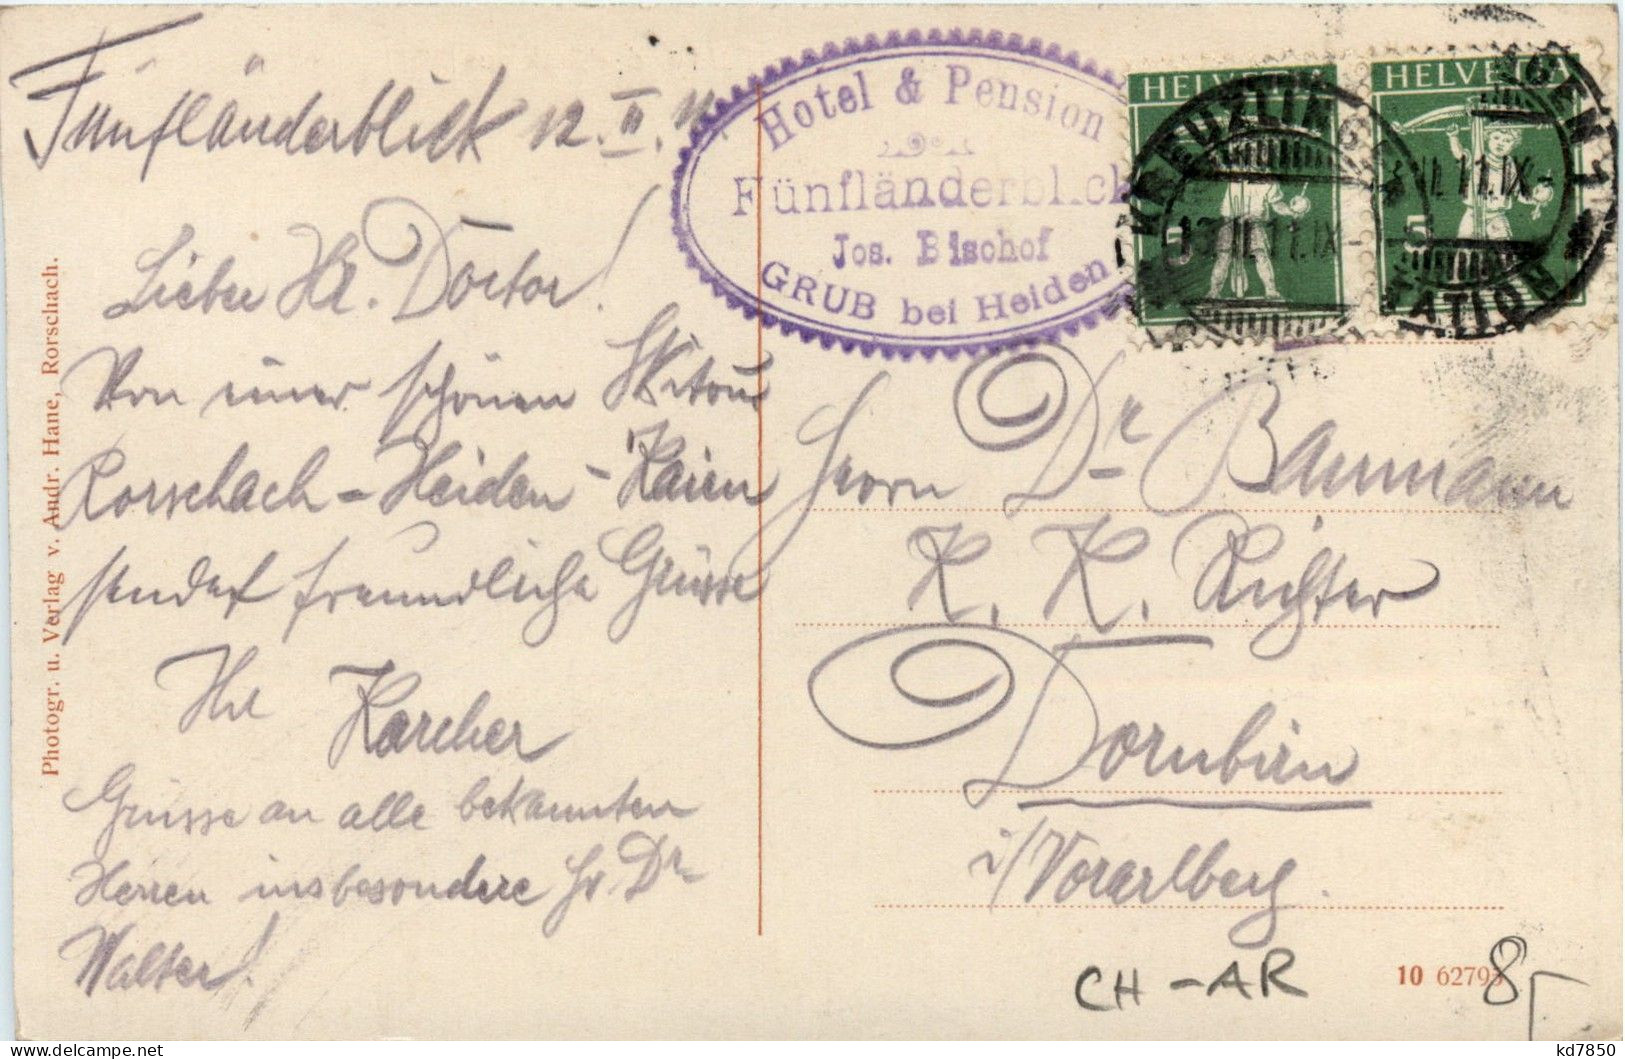 Fünfländerblick 12. II. 11
Lieber Hr. Doctor!
Von einer schönen Skitour
Rorschach - Heiden - Kaien
sendet freundliche Grüsse
Ihr Karcher
Grüsse an alle bekannten
Herren insbesondere Hr. Dr
Walter!
Photogr. u. Verlag v. Andr. Hane, Rorschach.
Hotel & Pension
Fünfländerblick
Jos. Bischof
GRUB bei Heiden
HELVETIA
5
HELVETIA
5
KREUZLINGEN
13. II. 11. IX
II. 11. IX
STATION
Herrn Dr Baumann
K. K. Richter
Dornbirn
i/Vorarlberg.
CH - AR
8,-
10
kd7850